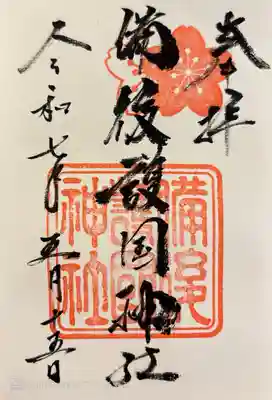 奉拝
備後護国神社
令和七年五月十五日
備後護国神社